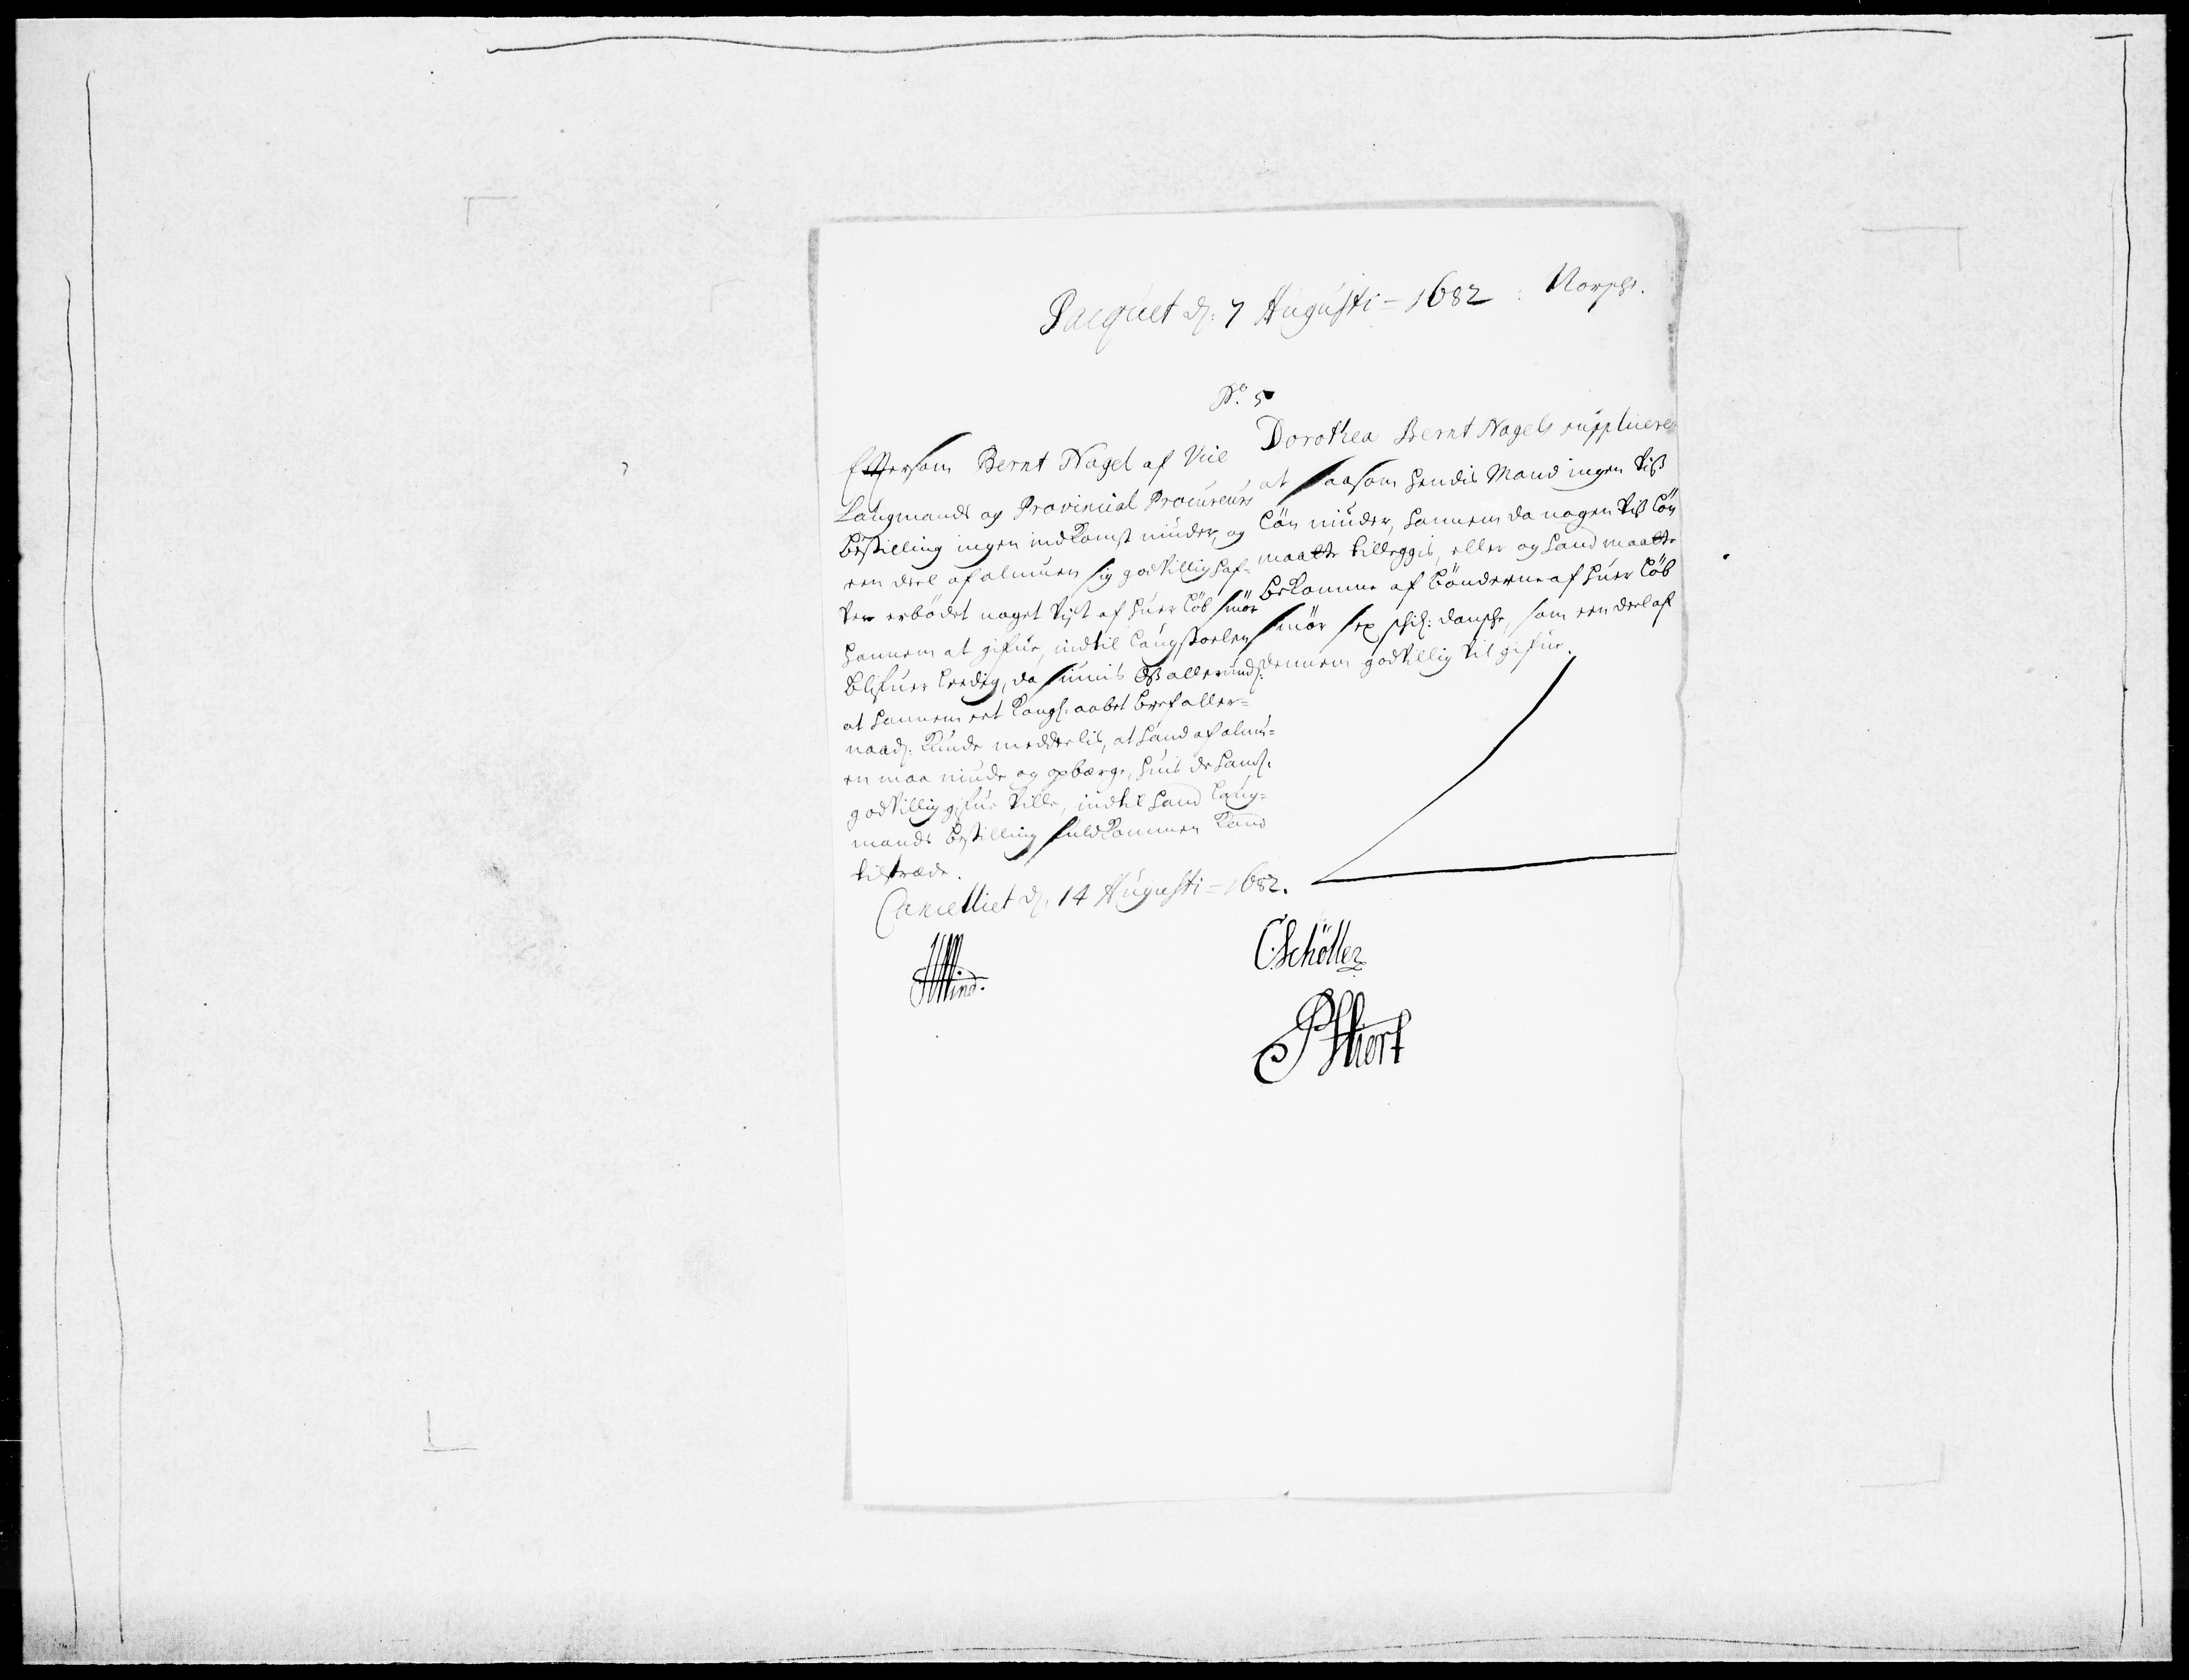 Pacquet d: 7 Augusti = 1682 : Norsche.
No. 5
Dorothea Bernt Nagels supplicerer
at saasom hendis Mand ingen viß
Lön niuder, hannem da nogen viß Lön
maatte tilleggis, eller og hand maatte
bekomme af bönderne af huer Löb
smör sex schil: danske, som een deel af
dennem godvillig vil gifue.
Eftersom Bernt Nagel af Vice
Laugmands og Provincial Procureurs
bestilling ingen indkomst niuder, og
een deel af almuen sig godvillig haf-
ver erbödet noget vist af huer Löb smör
hannem at gifue, indtil Laugstoelen
blifuer leedig, da siunis oß allerund:
at hannem eet kongl: aabet bref aller-
naad: kunde meddeelis, at hand af almu-
en maa niude og opbærge, huis de hans:
godvillig gifue ville, indtil hand Laug-
mands bestilling fuldkommen kand
tiltræde.
Cancelliet d: 14 Augusti = 1682.
C: Schöller
PHiort